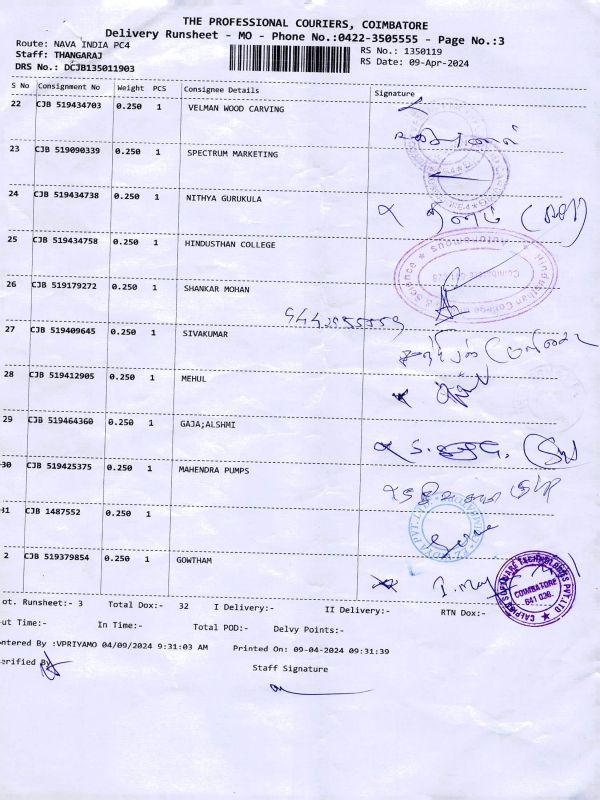 THE PROFESSIONAL COURIERS, COIMBATORE
Delivery Runsheet - MO - Phone No.:0422-3505555 - Page No.:3
Route: NAVA INDIA PC4
RS No.: 1350119
Staff: THANGARAJ
RS Date: 09-Apr-2024
DRS No.: DCJB135011903
S No Consignment No Weight PCS Consignee Details Signature
22 CJB 519434703 0.250 1 VELMAN WOOD CARVING
23 CJB 519090339 0.250 1 SPECTRUM MARKETING
24 CJB 519434738 0.250 1 NITHYA GURUKULA
25 CJB 519434758 0.250 1 HINDUSTHAN COLLEGE
26 CJB 519179272 0.250 1 SHANKAR MOHAN
27 CJB 519409645 0.250 1 SIVAKUMAR
28 CJB 519412905 0.250 1 MEHUL
29 CJB 519464360 0.250 1 GAJA;ALSHMI
30 CJB 519425375 0.250 1 MAHENDRA PUMPS
31 CJB 1487552 0.250 1
2 CJB 519379854 0.250 1 GOWTHAM
CALPION SOFTWARE TECHNOLOGIES PVT LTD
COIMBATORE
641 028.
ot. Runsheet:- 3 Total Dox:- 32 I Delivery:- II Delivery:- RTN Dox:-
ut Time:- In Time:- Total POD:- Delvy Points:-
ntered By :VPRIYAMO 04/09/2024 9:31:03 AM Printed On: 09-04-2024 09:31:39
erified By
Staff Signature